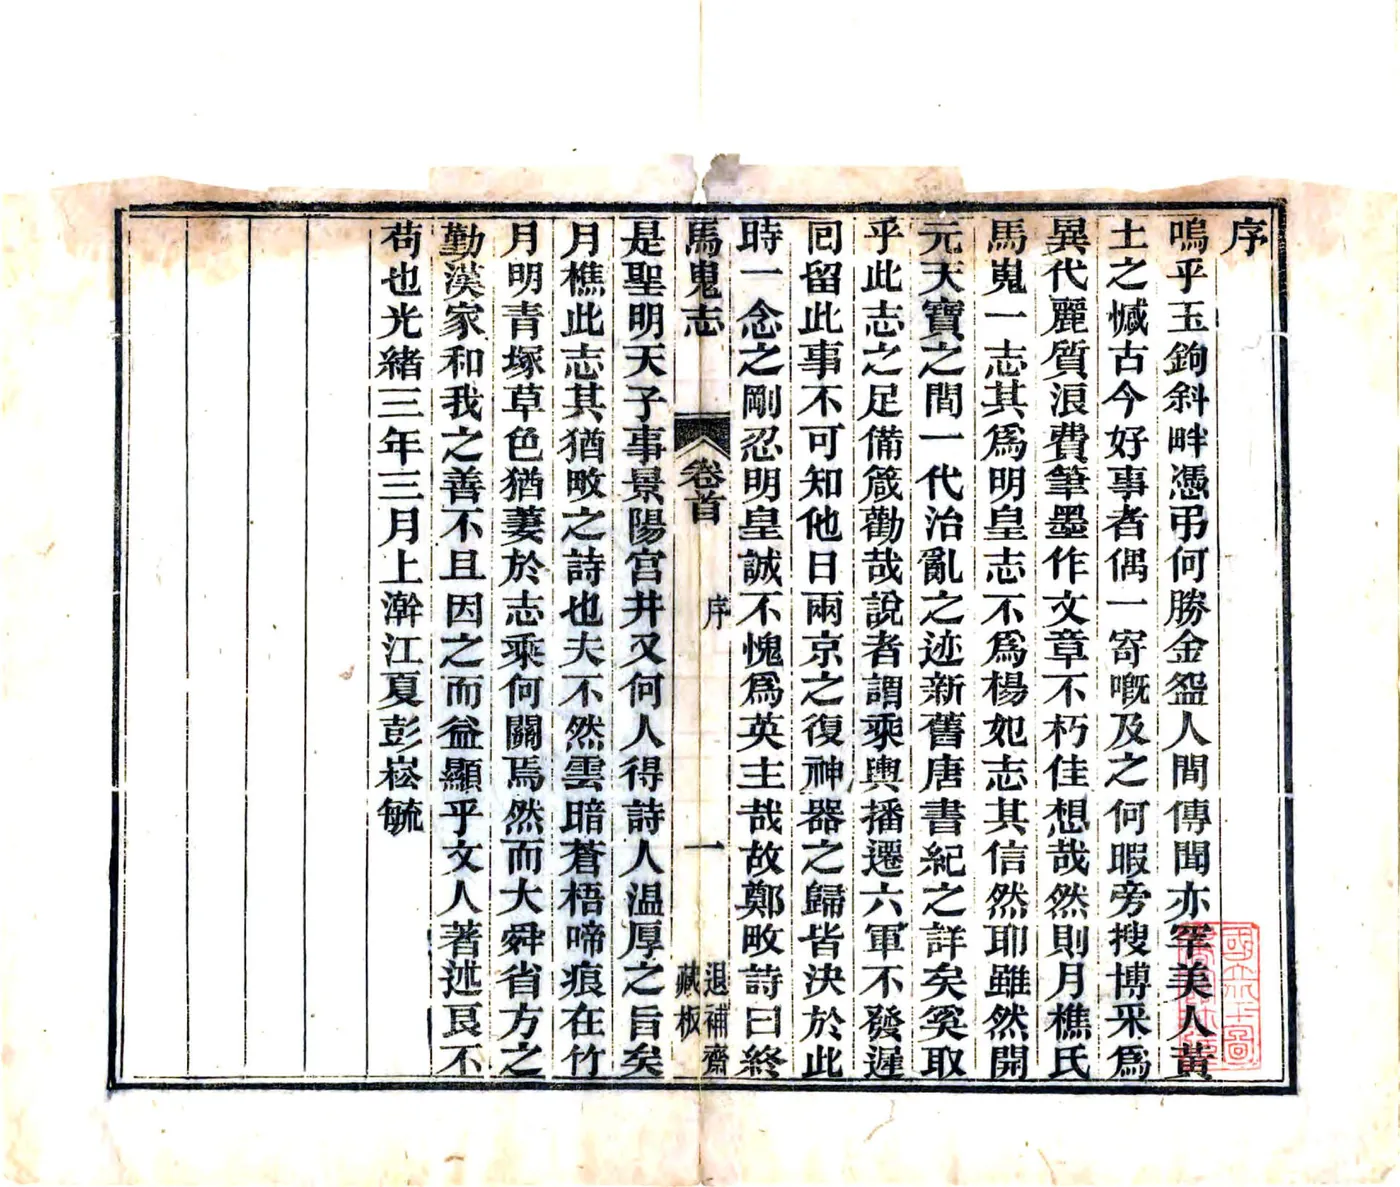 序
嗚乎玉鉤斜畔憑弔何勝金盌人間傳聞亦罕美人黃
土之憾古今好事者偶一寄嘅及之何暇旁搜博采爲
異代麗質浪費筆墨作文章不朽佳想哉然則月樵氏
馬嵬一志其爲明皇志不爲楊妃志其信然耶雖然開
元天寶之間一代治亂之迹新舊唐書紀之詳矣奚取
乎此志之足備箴勸哉說者謂乘輿播遷六軍不發遲
回留此事不可知他日兩京之復神器之歸皆決於此
時一念之剛忍明皇誠不愧爲英主哉故鄭畋詩曰終
馬嵬志
卷首
序
一
退補齋
藏板
是聖明天子事景陽宮井又何人得詩人温厚之旨矣
月樵此志其猶畋之詩也夫不然雲暗蒼梧啼痕在竹
月明青塚草色猶萋於志乘何關焉然而大舜省方之
勤漢家和戎之善不且因之而益顯乎文人著述良不
苟也光緒三年三月上澣江夏彭崧毓